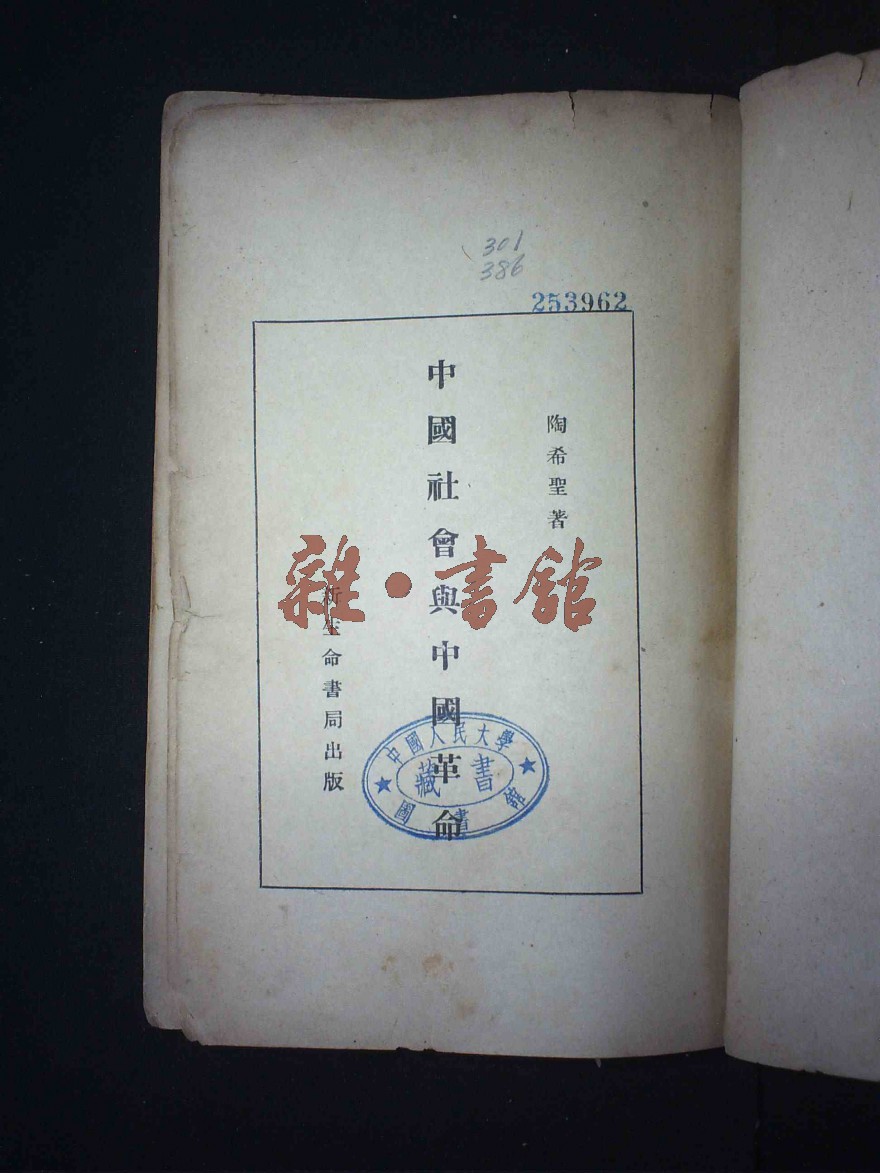 301
386
253962
陶希聖著
中國社會與中國革命
新生命書局出版
雜·書館
中國人民大學
藏書
圖書館